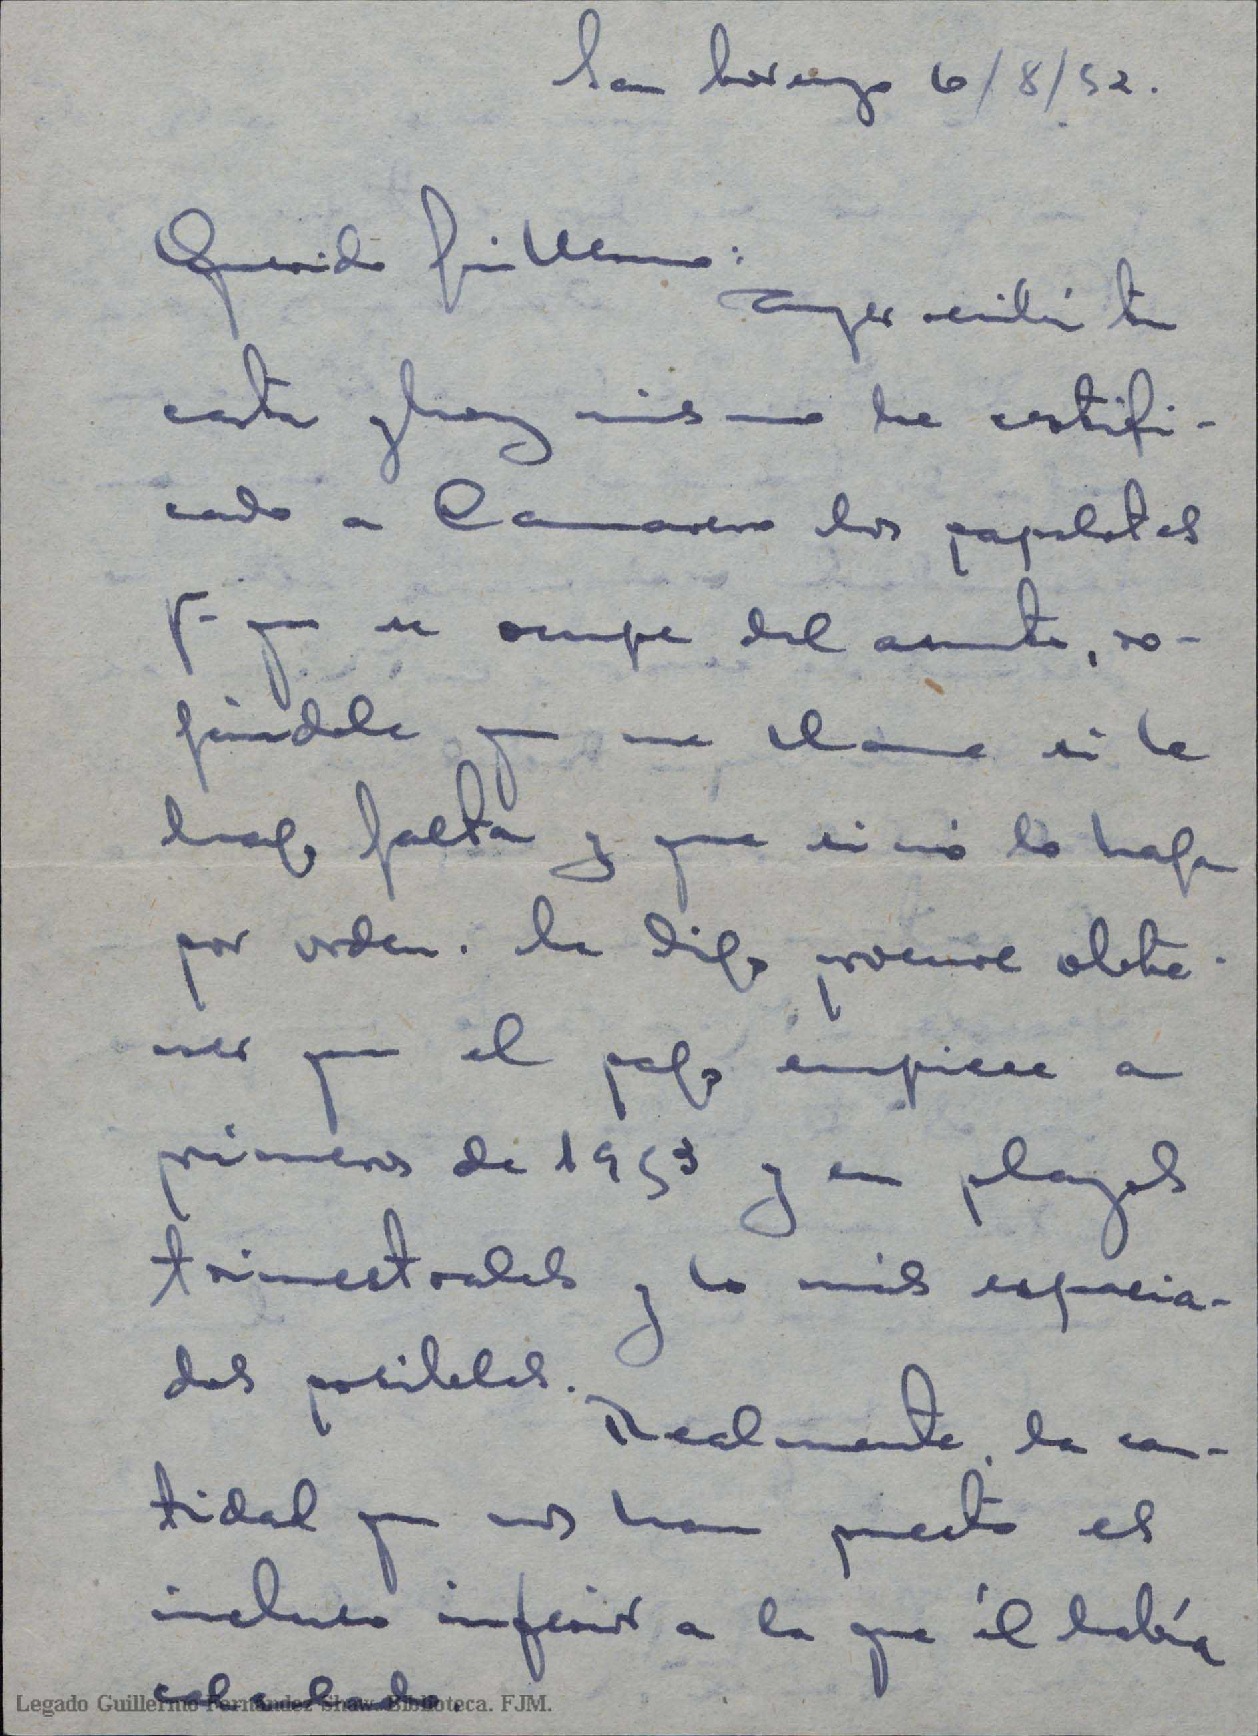 San Lorenzo 6/8/52.
Querido Guillermo:
Ayer recibí tu
carta y hoy mismo he certifi-
cado a Camarero los papelotes
p- que se ocupe del asunto, ro-
gándole que me llame si le
hago falta y que si nó lo haga
por orden. Le digo procure obte-
ner que el pago empiece a
primeros de 1953 y en plazos
trimestrales y lo más espacia-
dos posibles.
Realmente, la can-
tidad que nos han puesto es
incluso inferior a la que él había
calculado.
Legado Guillermo Fernández Shaw. Biblioteca. FJM.